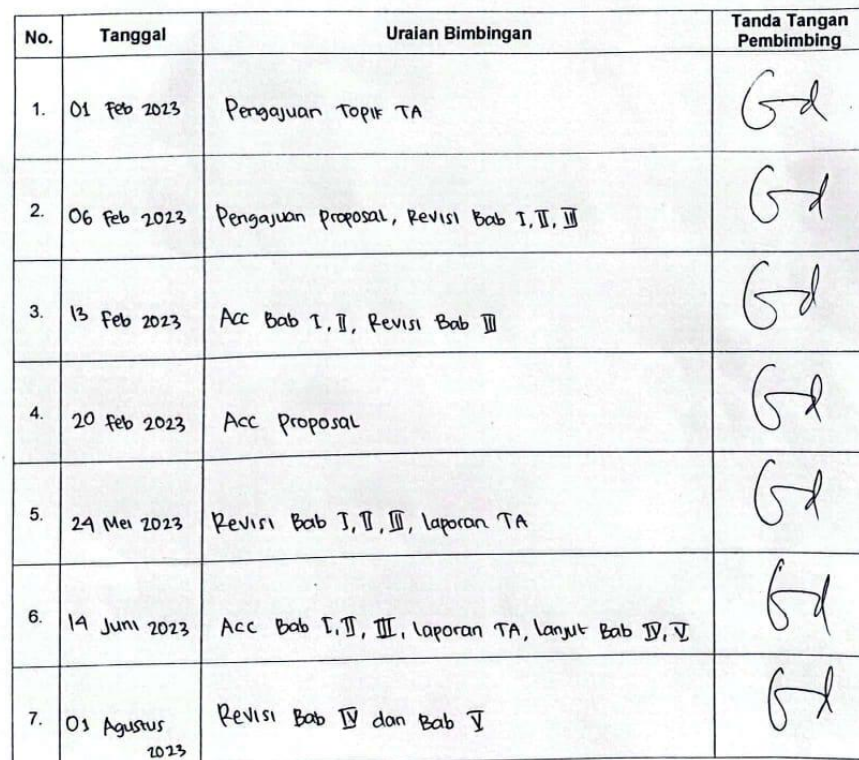 No. Tanggal Uraian Bimbingan Tanda Tangan Pembimbing
1. 01 Feb 2023 Pengajuan Topik TA
2. 06 Feb 2023 Pengajuan Proposal, Revisi Bab I, II, III
3. 13 Feb 2023 Acc Bab I, II, Revisi Bab III
4. 20 Feb 2023 Acc Proposal
5. 24 Mei 2023 Revisi Bab I, II, III, laporan TA
6. 14 Juni 2023 Acc Bab I, II, III, laporan TA, lanjut Bab IV, V
7. 01 Agustus 2023 Revisi Bab IV dan Bab V